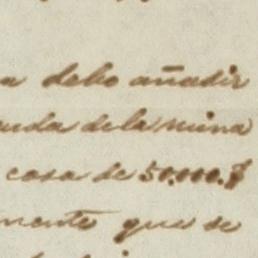 a debo añadir
euda de la mina
casa de 50.000.$
mente que se